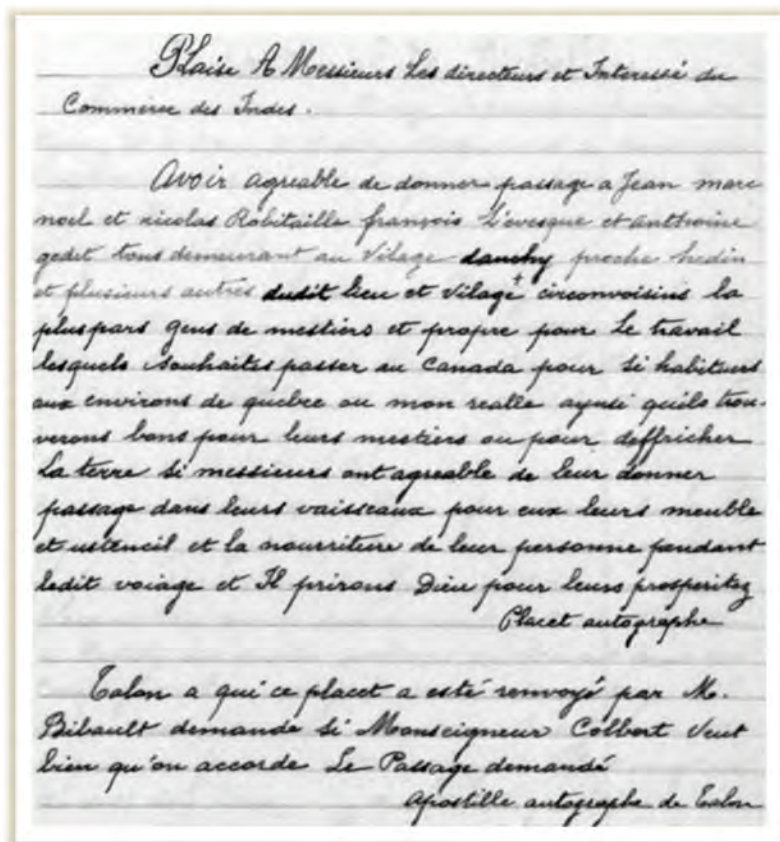 Plaise A Messieurs Les directeurs et Interessé du
Commerce des Indes.
Avoir agreable de donner passage a Jean marc
noel et nicolas Robitaille françois L'evesque et anthoine
gedet tous demeurant au Vilage danchy proche hedin
et plusieurs autres dudit lieu et Vilage + circonvoisins la
pluspars gens de mestiers et propre pour Le travail
lesquels souhaites passer au Canada pour si habituers
aux environs de quebec ou mon realle aynsi quils trou-
verons bons pour leurs mestiers ou pour deffricher
La terre Si messieurs ont agreable de leur donner
passage dans leurs vaisseaux pour eux leurs meuble
et ustencil et la nourriture de leur personne pendant
ledit voiage et Il prirons Dieu pour leurs prosperitez
Placet autographe
Talon a qui ce placet a esté renvoyé par M.
Bibault demande Si Monseigneur Colbert Veut
bien qu'on accorde Le Passage demandé
Apostille autographe de Talon